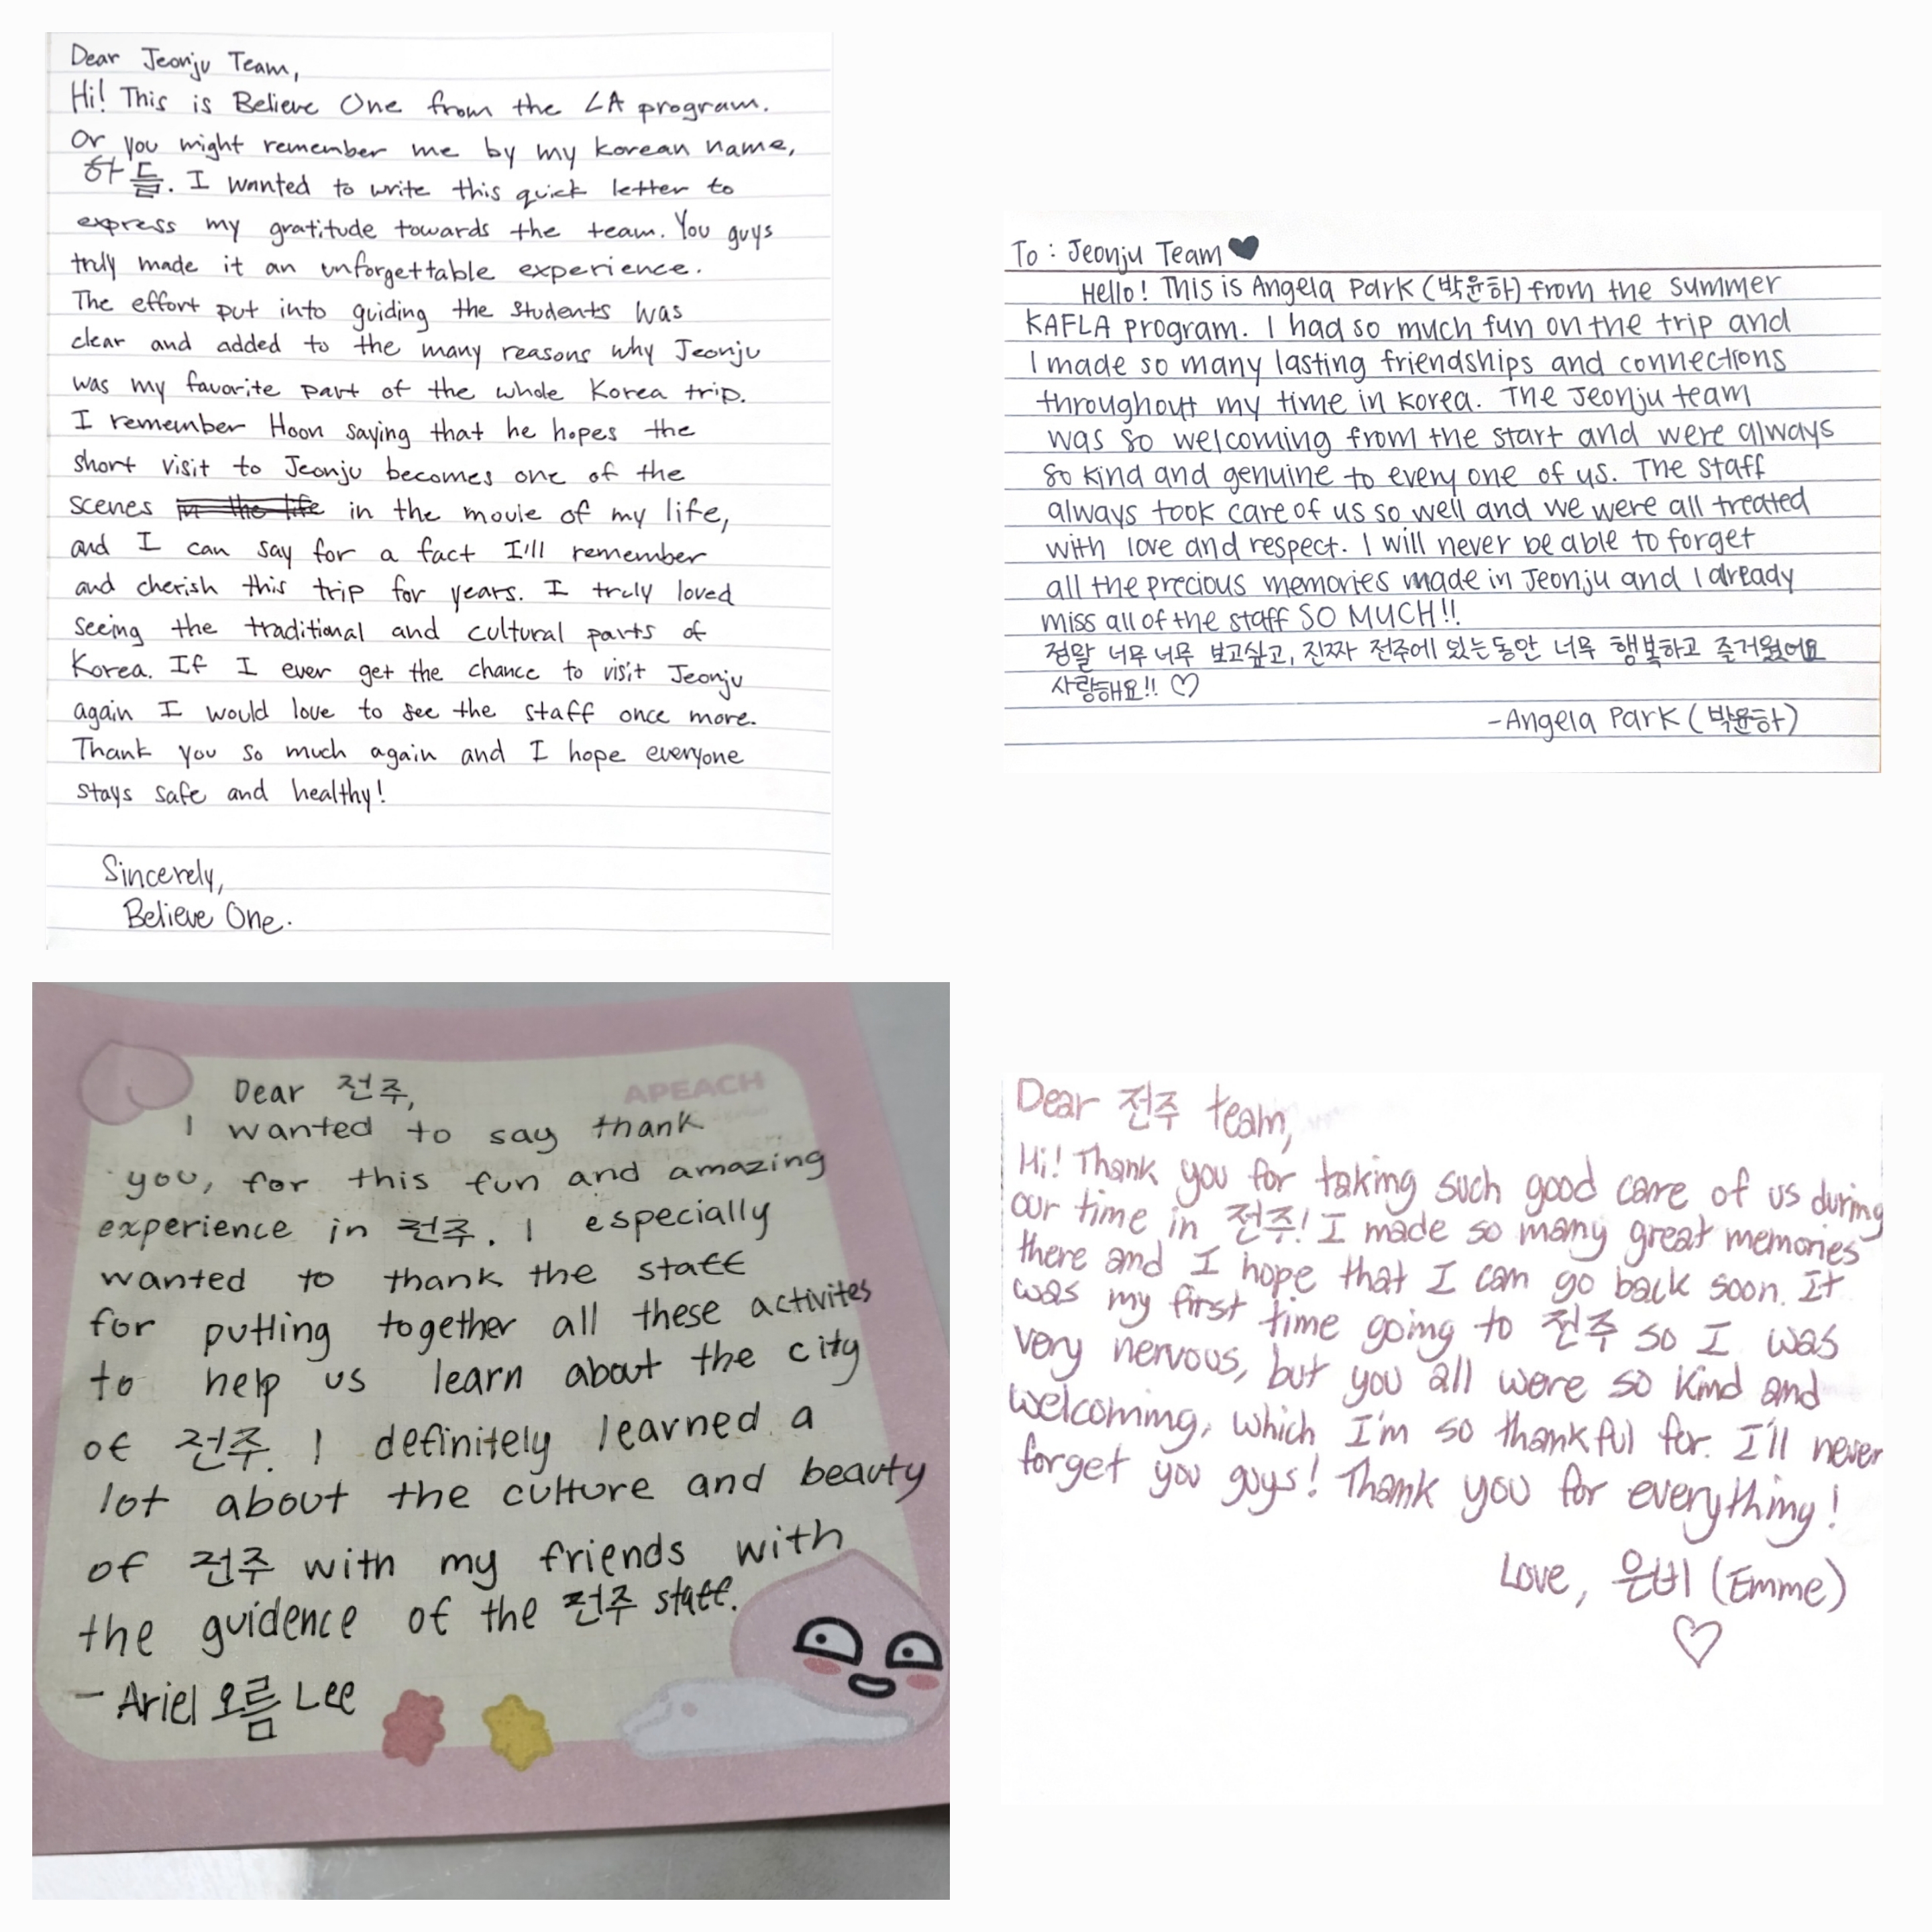 Dear Jeonju Team,
Hi! This is Believe One from the LA program.
Or you might remember me by my Korean name,
하늘. I wanted to write this quick letter to
express my gratitude towards the team. You guys
truly made it an unforgettable experience.
The effort put into guiding the students was
clear and added to the many reasons why Jeonju
was my favorite part of the whole Korea trip.
I remember Hoon saying that he hopes the
short visit to Jeonju becomes one of the
scenes in the life in the movie of my life,
and I can say for a fact I'll remember
and cherish this trip for years. I truly loved
seeing the traditional and cultural parts of
Korea. If I ever get the chance to visit Jeonju
again I would love to see the staff once more.
Thank you so much again and I hope everyone
stays safe and healthy!
Sincerely,
Believe One.
To: Jeonju Team ♥
Hello! This is Angela Park (박윤하) from the summer
KAFLA program. I had so much fun on the trip and
I made so many lasting friendships and connections
throughout my time in Korea. The Jeonju team
was so welcoming from the start and were always
so kind and genuine to every one of us. The staff
always took care of us so well and we were all treated
with love and respect. I will never be able to forget
all the precious memories made in Jeonju and I already
miss all of the staff SO MUCH!!
정말 너무 너무 보고싶고, 진짜 전주에 있는동안 너무 행복하고 즐거웠어요
사랑해요!! ♡
-Angela Park (박윤하)
APEACH
Dear 전주,
I wanted to say thank
you, for this fun and amazing
experience in 전주. I especially
wanted to thank the staff
for putting together all these activites
to help us learn about the city
of 전주. I definitely learned a
lot about the culture and beauty
of 전주 with my friends with
the guidence of the 전주 staff.
- Ariel 오름 Lee
Dear 전주 team,
Hi! Thank you for taking such good care of us during
our time in 전주! I made so many great memories
there and I hope that I can go back soon. It
was my first time going to 전주 so I was
very nervous, but you all were so kind and
welcoming, which I'm so thankful for. I'll never
forget you guys! Thank you for everything!
Love, 은비 (Emme)
♡